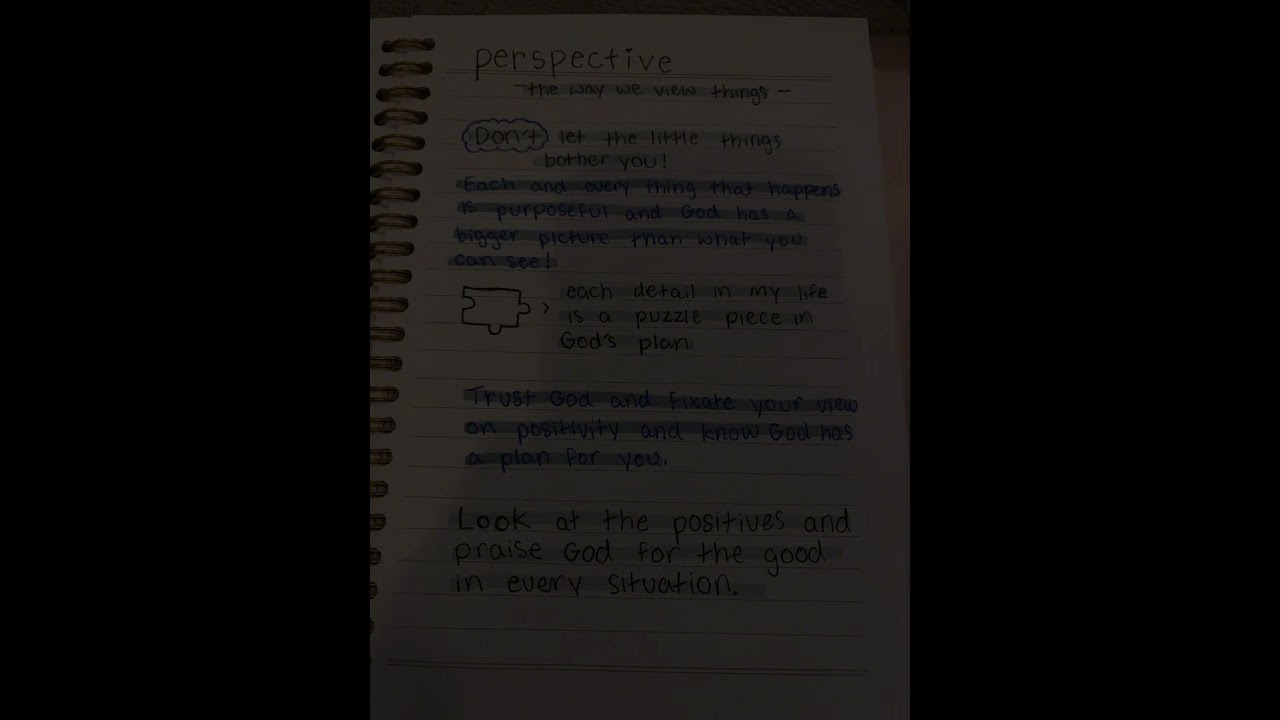 perspective
- the way we view things -
Don't let the little things
bother you!
Each and every thing that happens
is purposeful and God has a
bigger picture than what you
can see!
> each detail in my life
is a puzzle piece in
God's plan
Trust God and fixate your view
on positivity and know God has
a plan for you.
Look at the positives and
praise God for the good
in every situation.